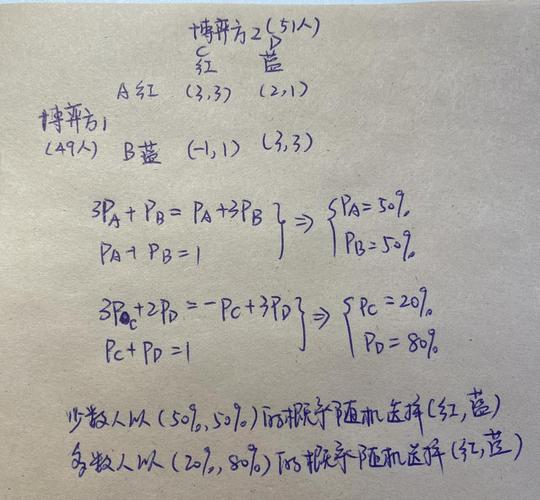 博弈方2(51人)
C D
红 蓝
A红 (3,3) (2,1)
博弈方1
(49人) B蓝 (-1,1) (3,3)
3PA+PB=PA+3PB } ⇒ { PA=50%
PA+PB=1 PB=50%
3PC+2PD=-PC+3PD } ⇒ { PC=20%
PC+PD=1 PD=80%
少数人以(50%,50%)的概率随机选择(红,蓝)
多数人以(20%,80%)的概率随机选择(红,蓝)